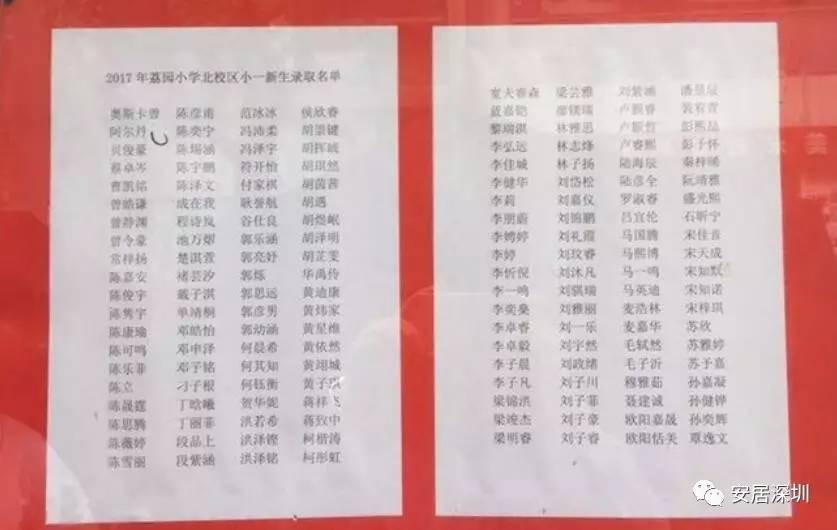 2017 年荔园小学北校区小一新生录取名单
奥斯卡曾 陈彦甫 范冰冰 侯欣睿
阿尔丹 陈奕宁 冯沛柔 胡崇键
贝俊豪 陈埸涵 冯泽宇 胡挥彧
蔡卓岑 陈宇鹏 符开怡 胡琪然
曹凯铭 陈泽文 付家祺 胡茵茜
曾皓谦 成在我 耿誉航 胡遇
曾静渊 程诗岚 谷仕良 胡煜岷
曾令豪 池万熠 郭乐涵 胡泽明
常梓扬 楚淇萱 郭亮妤 胡芷雯
陈嘉安 褚芸汐 郭烁 华禹伶
陈俊宇 戴子淇 郭思远 黄迪康
陈隽宇 单靖桐 郭彦男 黄炜家
陈康瑜 邓皓怡 郭幼涵 黄星维
陈可鸣 邓申泽 何晨希 黄依然
陈乐菲 邓子铭 何其知 黄翊城
陈立 刁子根 何钰衡 黄子琪
陈晟霆 丁晗曦 贺华妮 蒋祥飞
陈思腾 丁丽菲 洪若希 蒋致中
陈薇婷 段品上 洪泽铿 柯楷涛
陈雪丽 段紫涵 洪泽铭 柯彤虹
梁芸雅 刘紫涵
蓝嘉铠 廖镁瑞 卢颢睿 裴宥萱
黎瑞淇 林雅思 卢颢哲 彭熙喆
李弘远 林志烽 卢睿熙 彭子怀
李佳城 林子扬 陆海辰 秦梓晞
李健华 刘岱松 陆彦全 阮靖雅
李莉 刘嘉仪 罗淑睿 盛光熙
李朋蔚 刘锦鹏 吕宜伦 石昕宁
李娉婷 刘礼霞 马国腾 宋佳音
李婷 刘玟睿 马熙博 宋天成
李忻倪 刘沐凡 马一鸣 宋知默
李一鸣 刘骐瑞 马英迪 宋知诺
李奕燊 刘雅丽 麦浩林 宋梓琪
李卓睿 刘一乐 麦嘉华 苏欣
李卓毅 刘宇然 毛轼然 苏雅婷
李子晨 刘政绪 毛子沂 苏予嘉
李子凡 刘子川 穆雅茹 孙嘉凝
梁锦洪 刘子菲 聂建诚 孙健铧
梁竣杰 刘子豪 欧阳嘉晟 孙奕辉
梁明睿 刘子睿 欧阳恬美 覃逸文
安居深圳